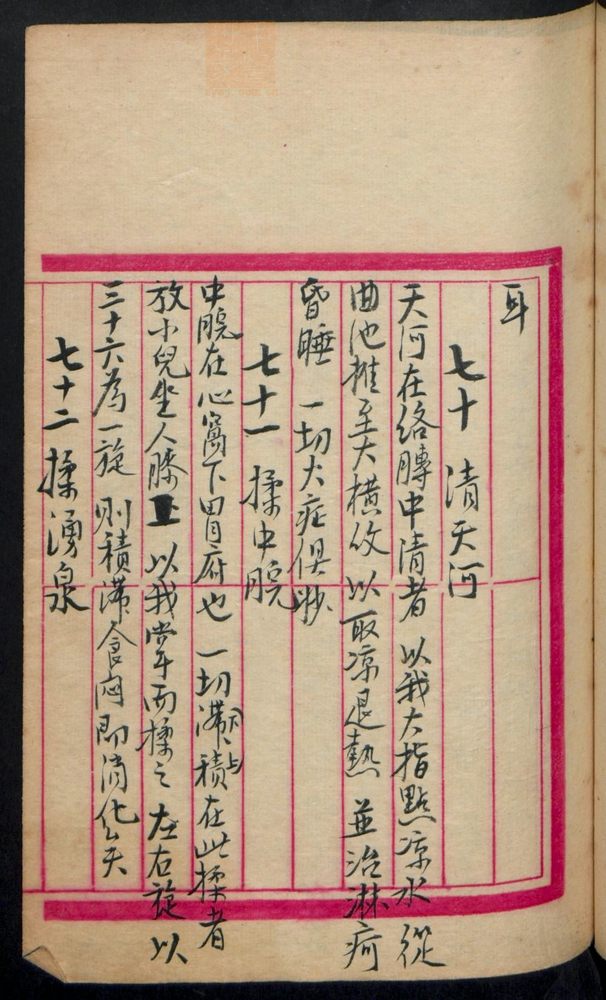 耳
七十 清天河
天河在络膊中清者 以我大指點凉水 從
曲池推至大横纹 以取凉退熱 並治淋疴
昏睡 一切火症俱妙
七十一 揉中脘
中脘在心窩下胃府也 一切滞積在此揉者
放小兒坐人膝上 以我掌而揉之 左右旋以
三十六為一旋 则積滞食闷即消化矣
七十二 揉湧泉